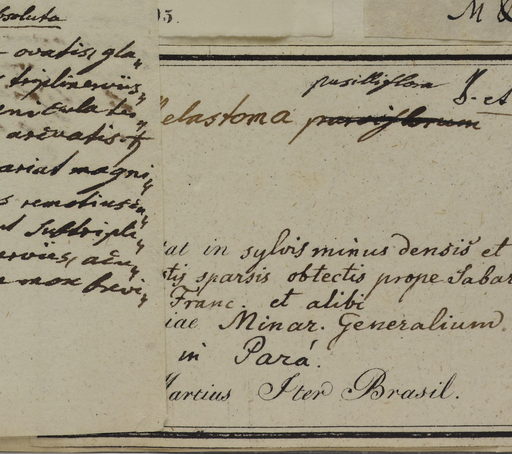 bsoluta
ovatis, gla„
triplinerviis„
arcvatis
variat magni„
s remotiusĉu„
subtripli„
nerviis, acu„
mox brevi„
95.
M &
pusilliflora
S. et
elastoma parviflorum
tat in sylvis minus densis et
tis sparsis obtectis prope Sabar
Franc. et alibi
iae Minar. Generalium.
in Pará.
Martius Iter Brasil.